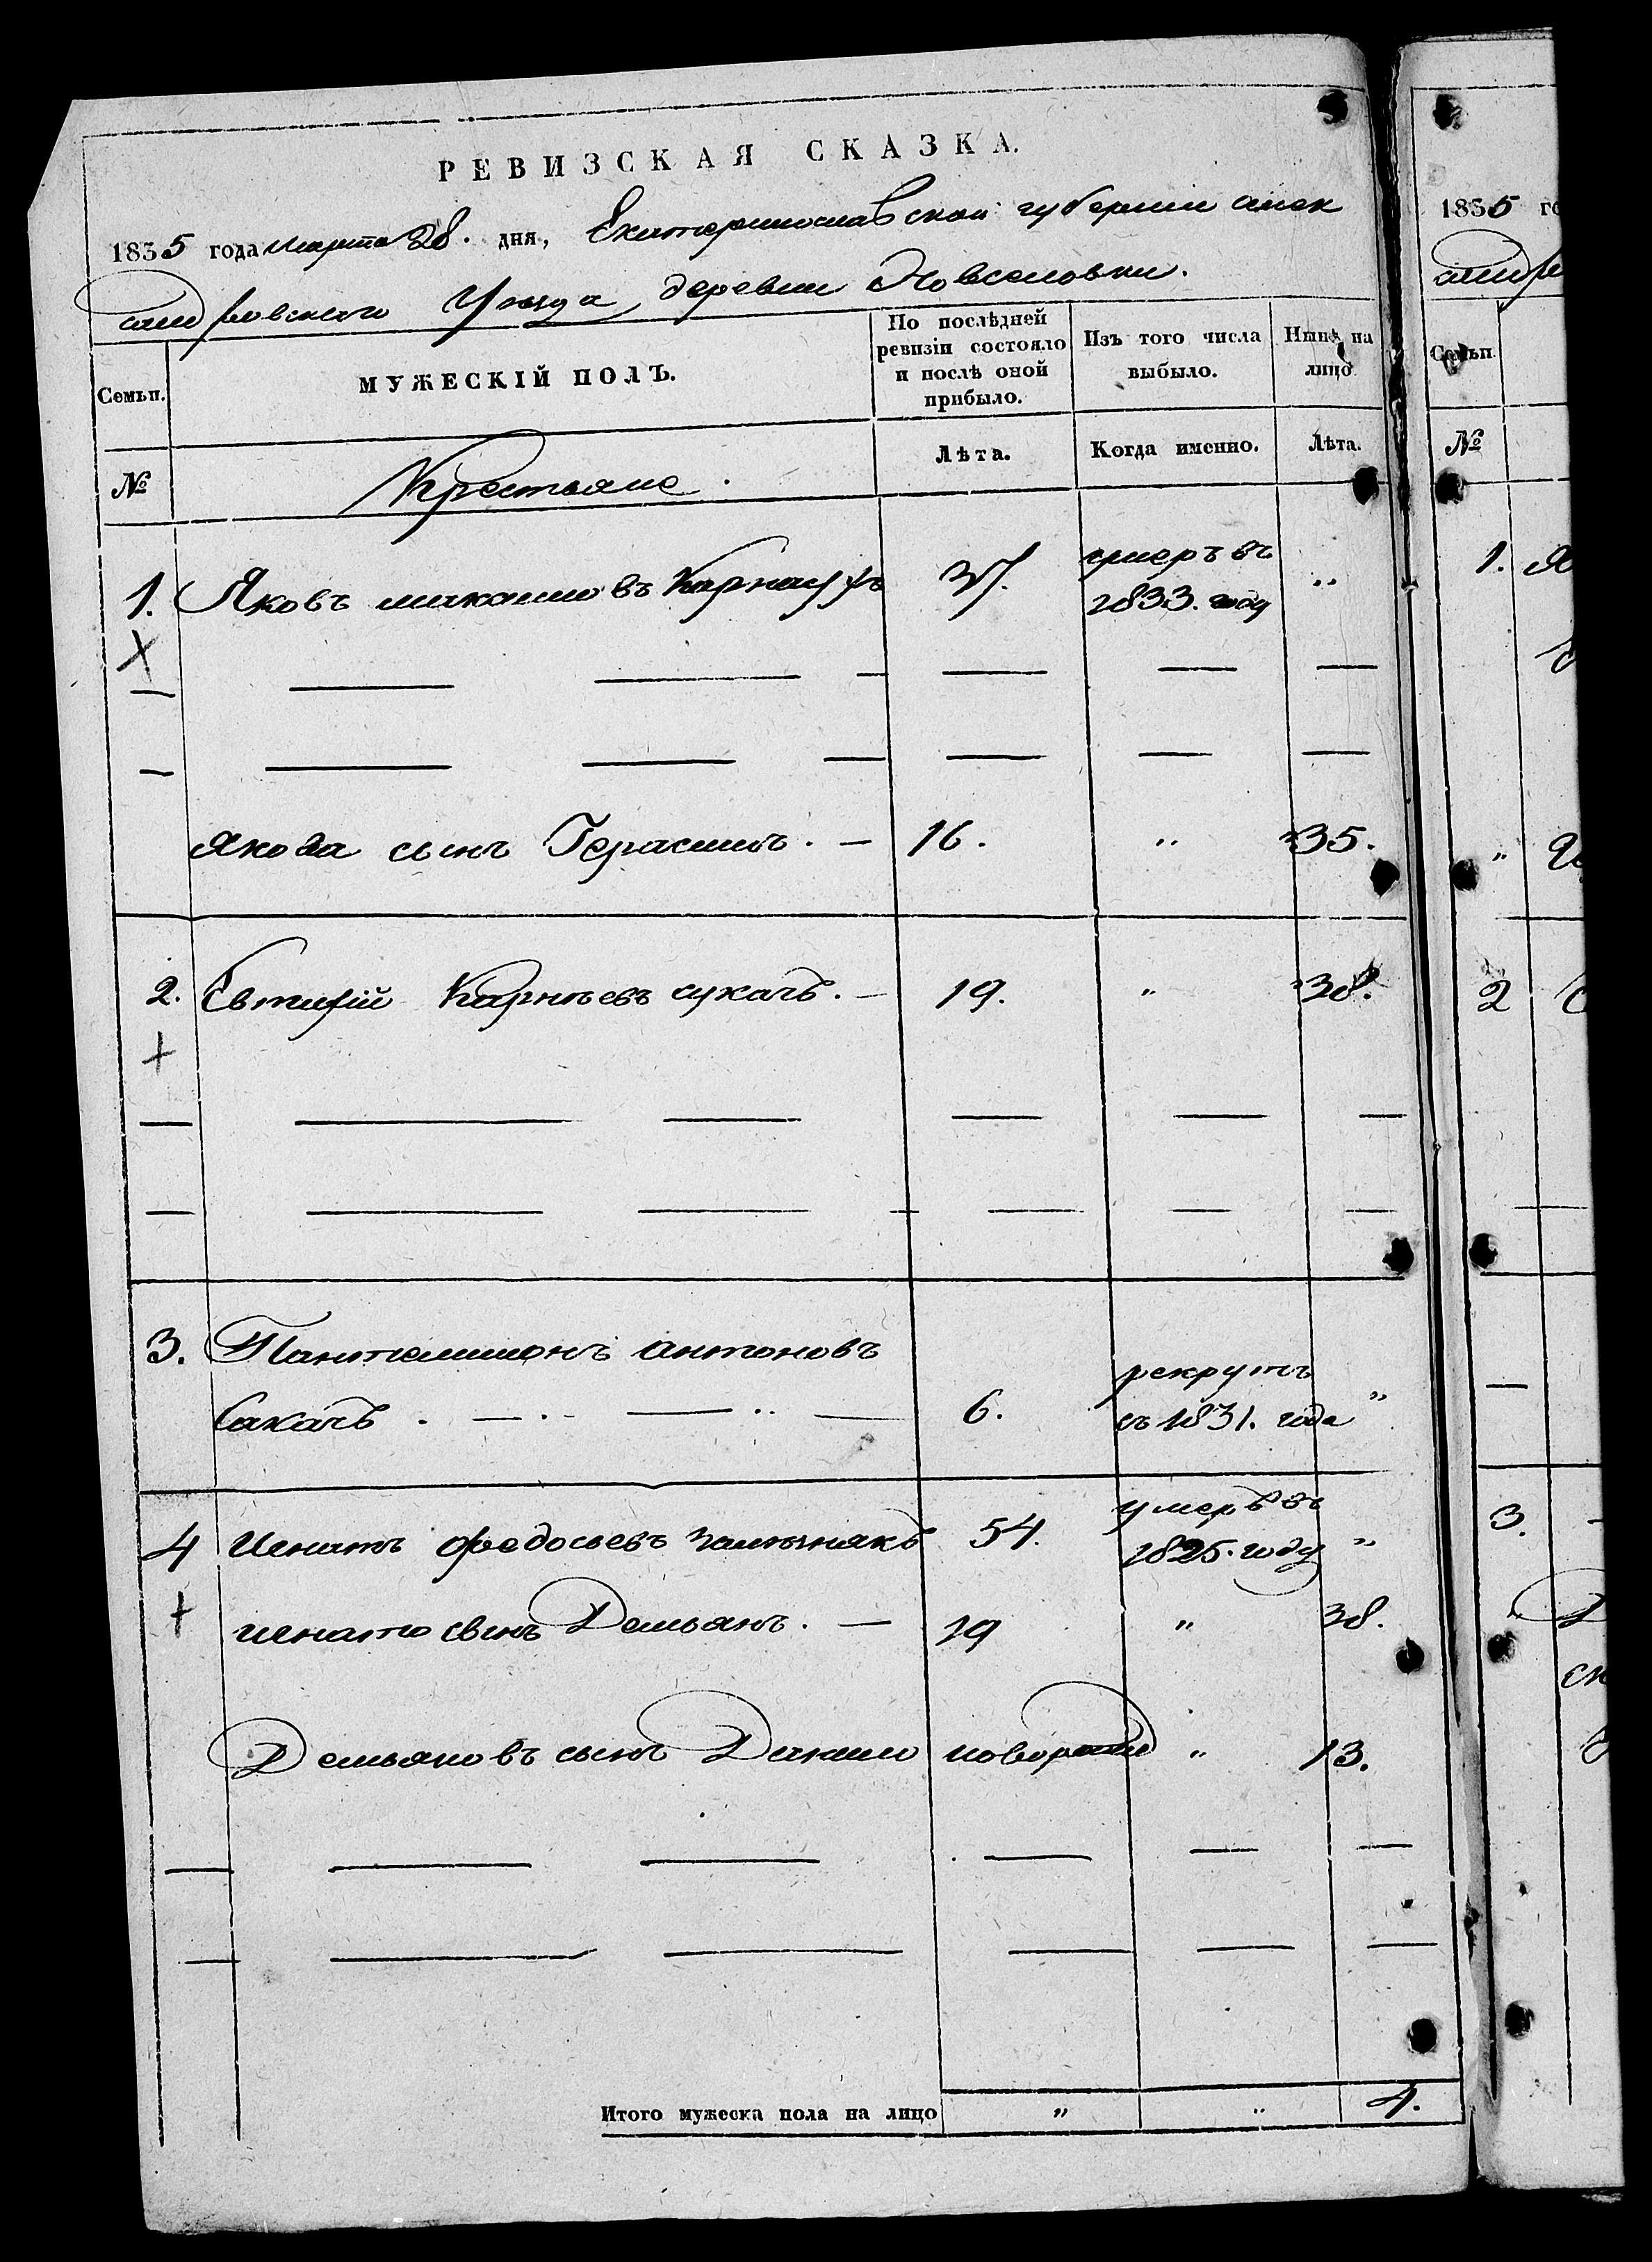 РЕВИЗСКАЯ СКАЗКА.
1835 года Марта 28. дня, Екатеринославской губернии алек
сандровского Уезда, деревни Новоселовки.
Семьи.
МУЖЕСКІЙ ПОЛЪ.
По послѣдней
ревизіи состояло
и послѣ оной
прибыло.
Изъ того числа
выбыло.
Нынѣ на
лицо
№
Крестьяне.
Лѣта.
Когда именно.
Лѣта.
1. Яковъ Карнаухъ 37. умеръ въ
1833. году "
Якова сынъ Герасимъ. — 16. " 35.
2. Евтифій Карнѣевъ сукачъ. — 19. " 38.
3. Пантелимонъ антоновъ
Сакачъ 6. рекрутъ
съ 1831. года "
4 Игнатъ Федосьевъ 54. умеръ въ
1825. году "
игнато сынъ Демьянъ. — 19 " 38.
Демьяновъ сынъ Данило " 13.
Итого мужеска пола на лицо " " 4.
1835 го
Семьи.
№
1. Я
2
3.